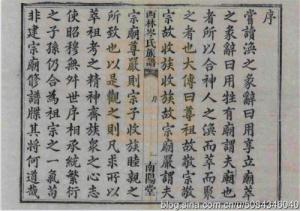 序
嘗讀渙之彖辭曰用享立廟萃
之彖辭曰用牲有廟謂夫廟也
者所以合神人之渙而萃而聚
之者也大傳曰尊祖故敬宗敬
宗故收族收族故宗廟嚴謂夫
西林岑氏族譜
序
南陽堂
宗廟尊嚴則宗子收族睦親之
所致也以是觀之則凡求所以
萃祖考之精神齊族衆之心志
使昭穆無舛世序相承統繁衍
之子孫仍合為祖宗之一氣苟
非建宗廟修譜牒其將何道哉
blog.sina.com.cn/u/5084346040